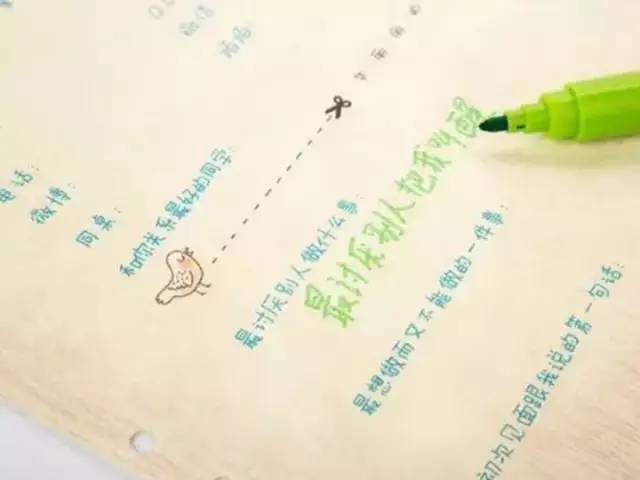 微信:
陌陌:
电话:
微博:
同桌:
和你关系最好的同学:
最讨厌别人做什么事:
最讨厌别人把我叫醒
最想做而又不能做的一件事:
初次见面跟我说的第一句话: